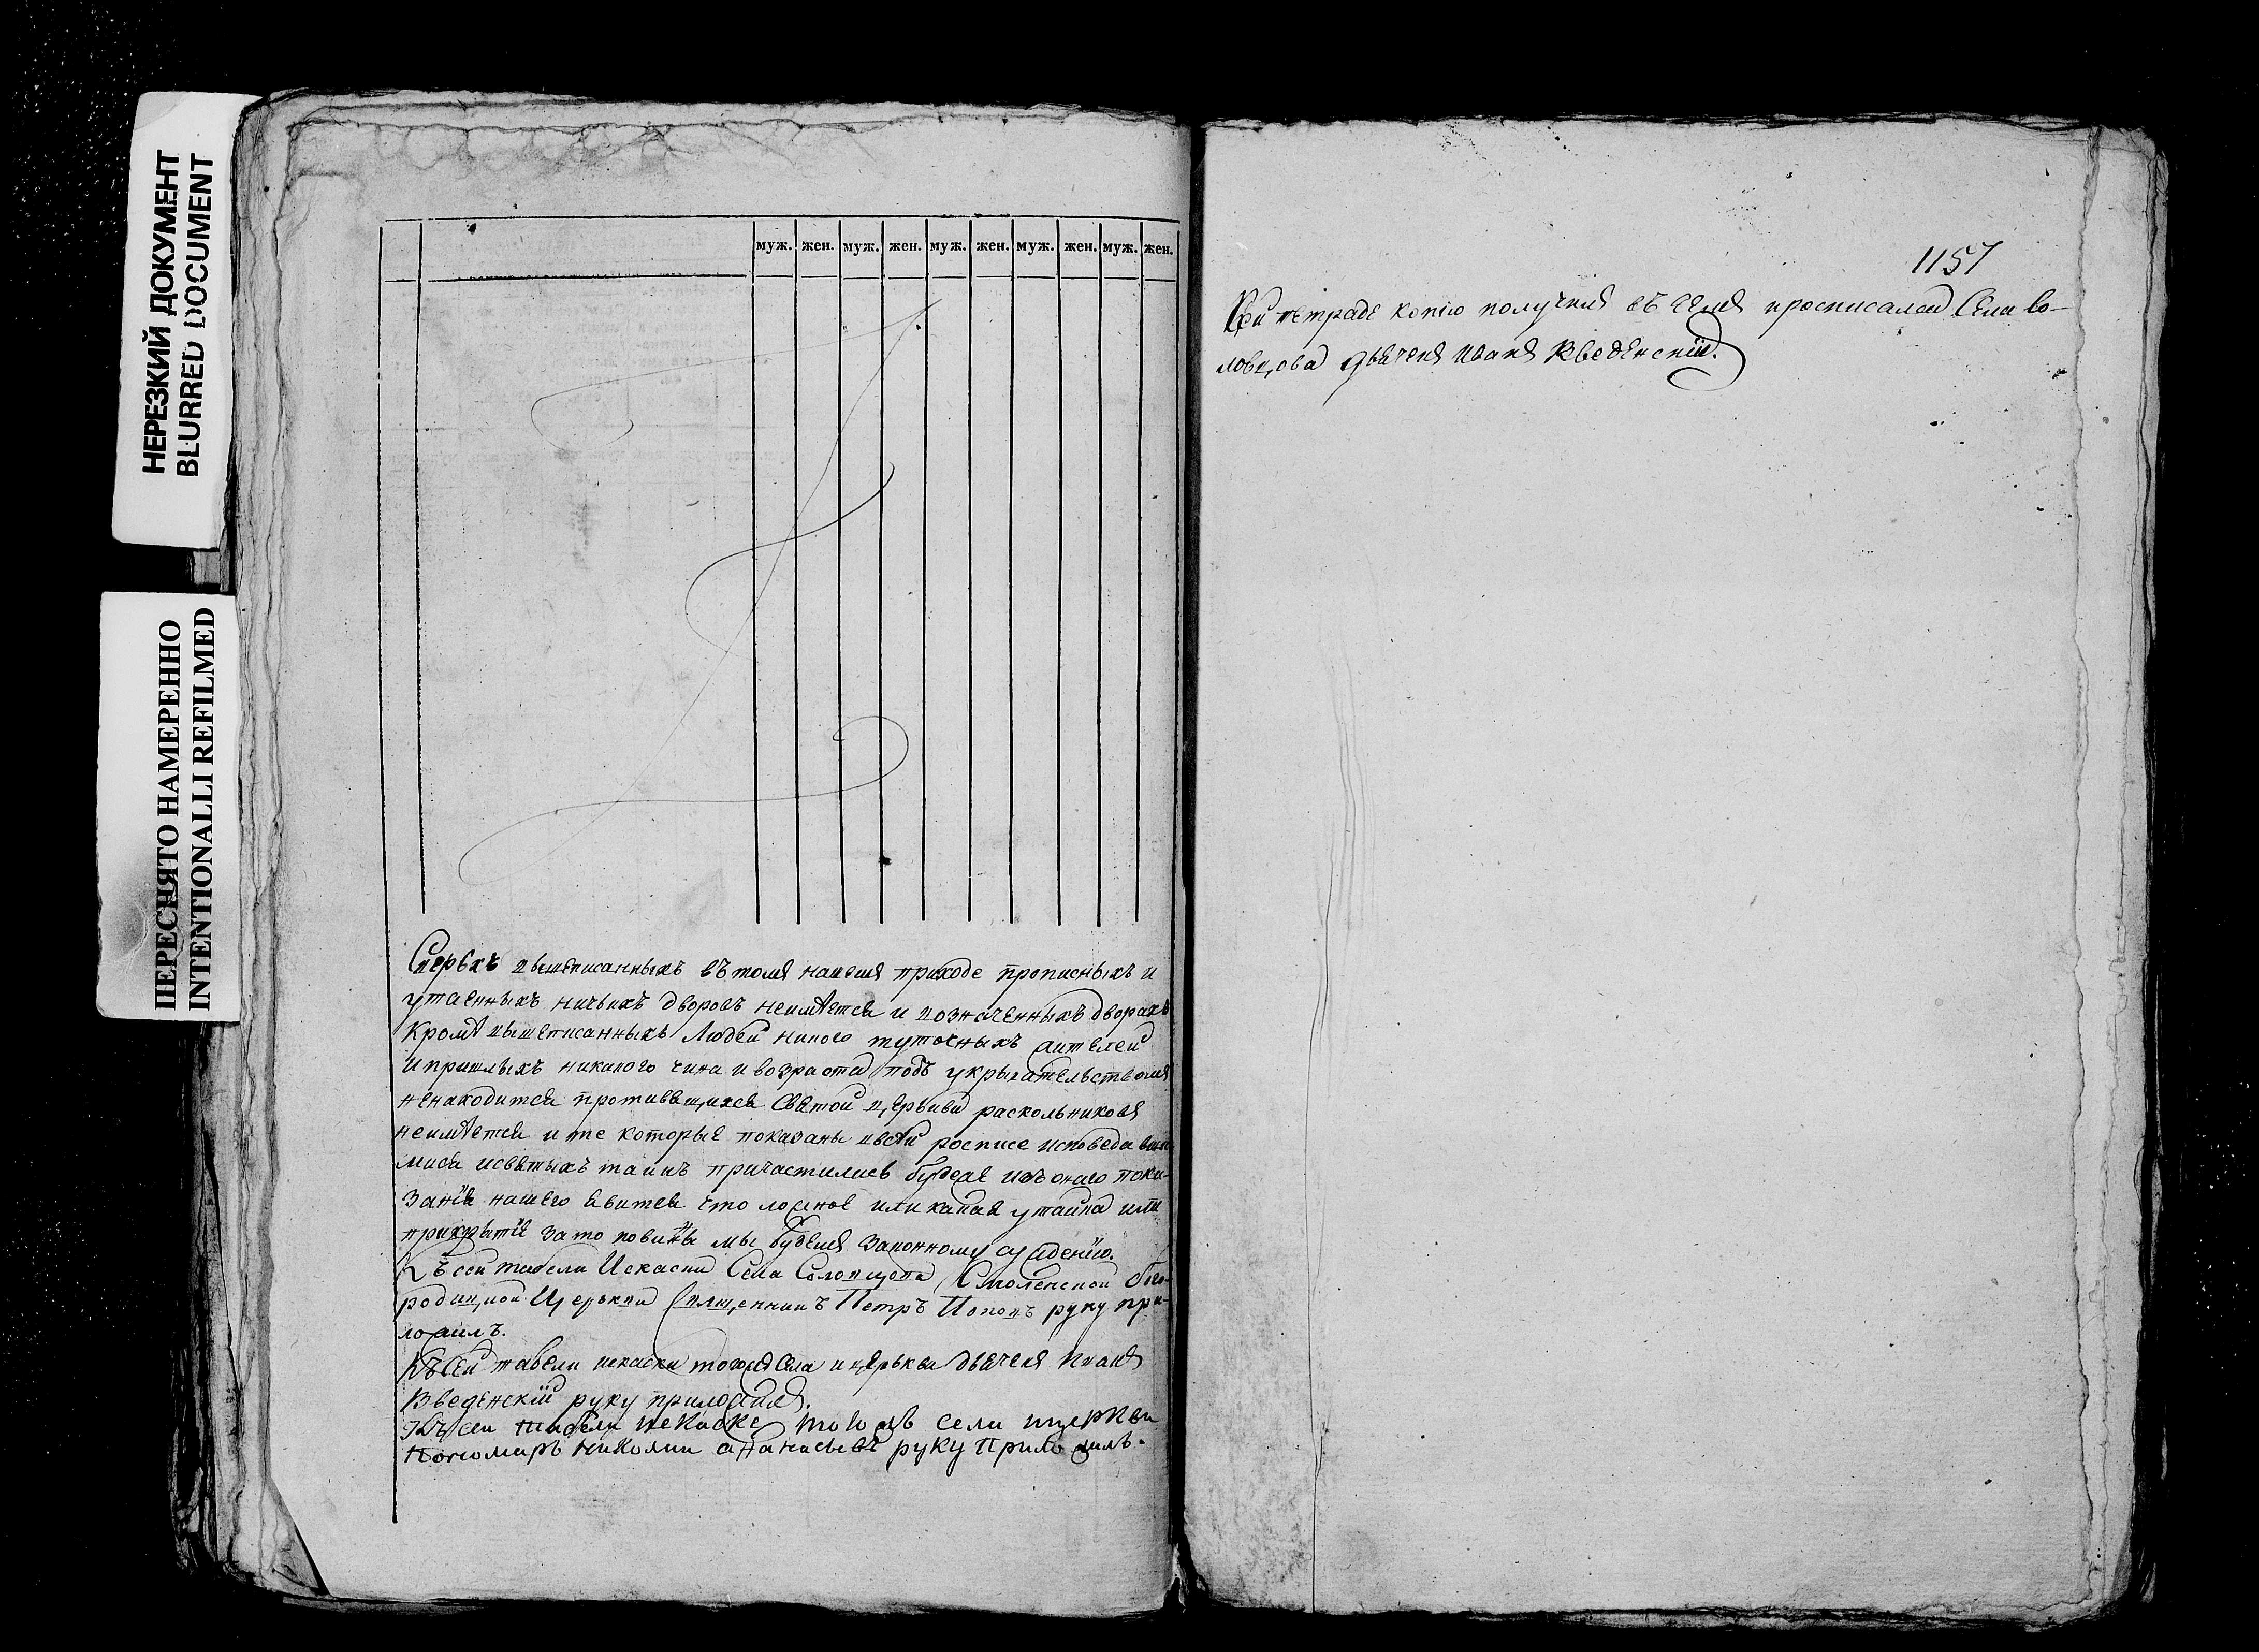 НЕРЕЗКИЙ ДОКУМЕНТ
BLURRED DOCUMENT
ПЕРЕСНЯТО НАМЕРЕННО
INTENTIONALLI REFILMED
муж. жен. муж. жен. муж. жен. муж. жен. муж. жен.
Сверьхъ вышеписанныхъ въ томъ нашемъ приходе прописныхъ и
утаенныхъ ничьихъ дворовъ неимѣется и возначенныхъ дворахъ
кромѣ вышеписанныхъ людей никого тутошныхъ жителей
и пришлыхъ никакого чина и возраста подъ укрывательствомъ
ненаходится противящихся святой церькви раскольниковъ
неимѣется и те которые показаны в сей росписе исповедавши
мися и святыхъ таинъ причастились будеже изъ онаго пока-
занїя нашего явится что ложное или какая утайка или
прикрытїе за то повинны мы будемъ законному суждению.
Къ сей табели и скаски села Соловцова Смоленской бого-
родицкой церькви священникъ Петръ Поповъ руку при-
ложилъ.
Къ сей табели искаски тогожъ села и церькви дьячекъ Иванъ
Введенскїй руку приложилъ.
Къ сеи табели искаске тогожъ села ицеркви
Пономарь Николаи Афанасьевъ руку Приложилъ.
1157
Сеи тетраде копїю получилъ въ чемъ и росписался Села Со-
ловцова дьячекъ Иванъ Введенскїй.